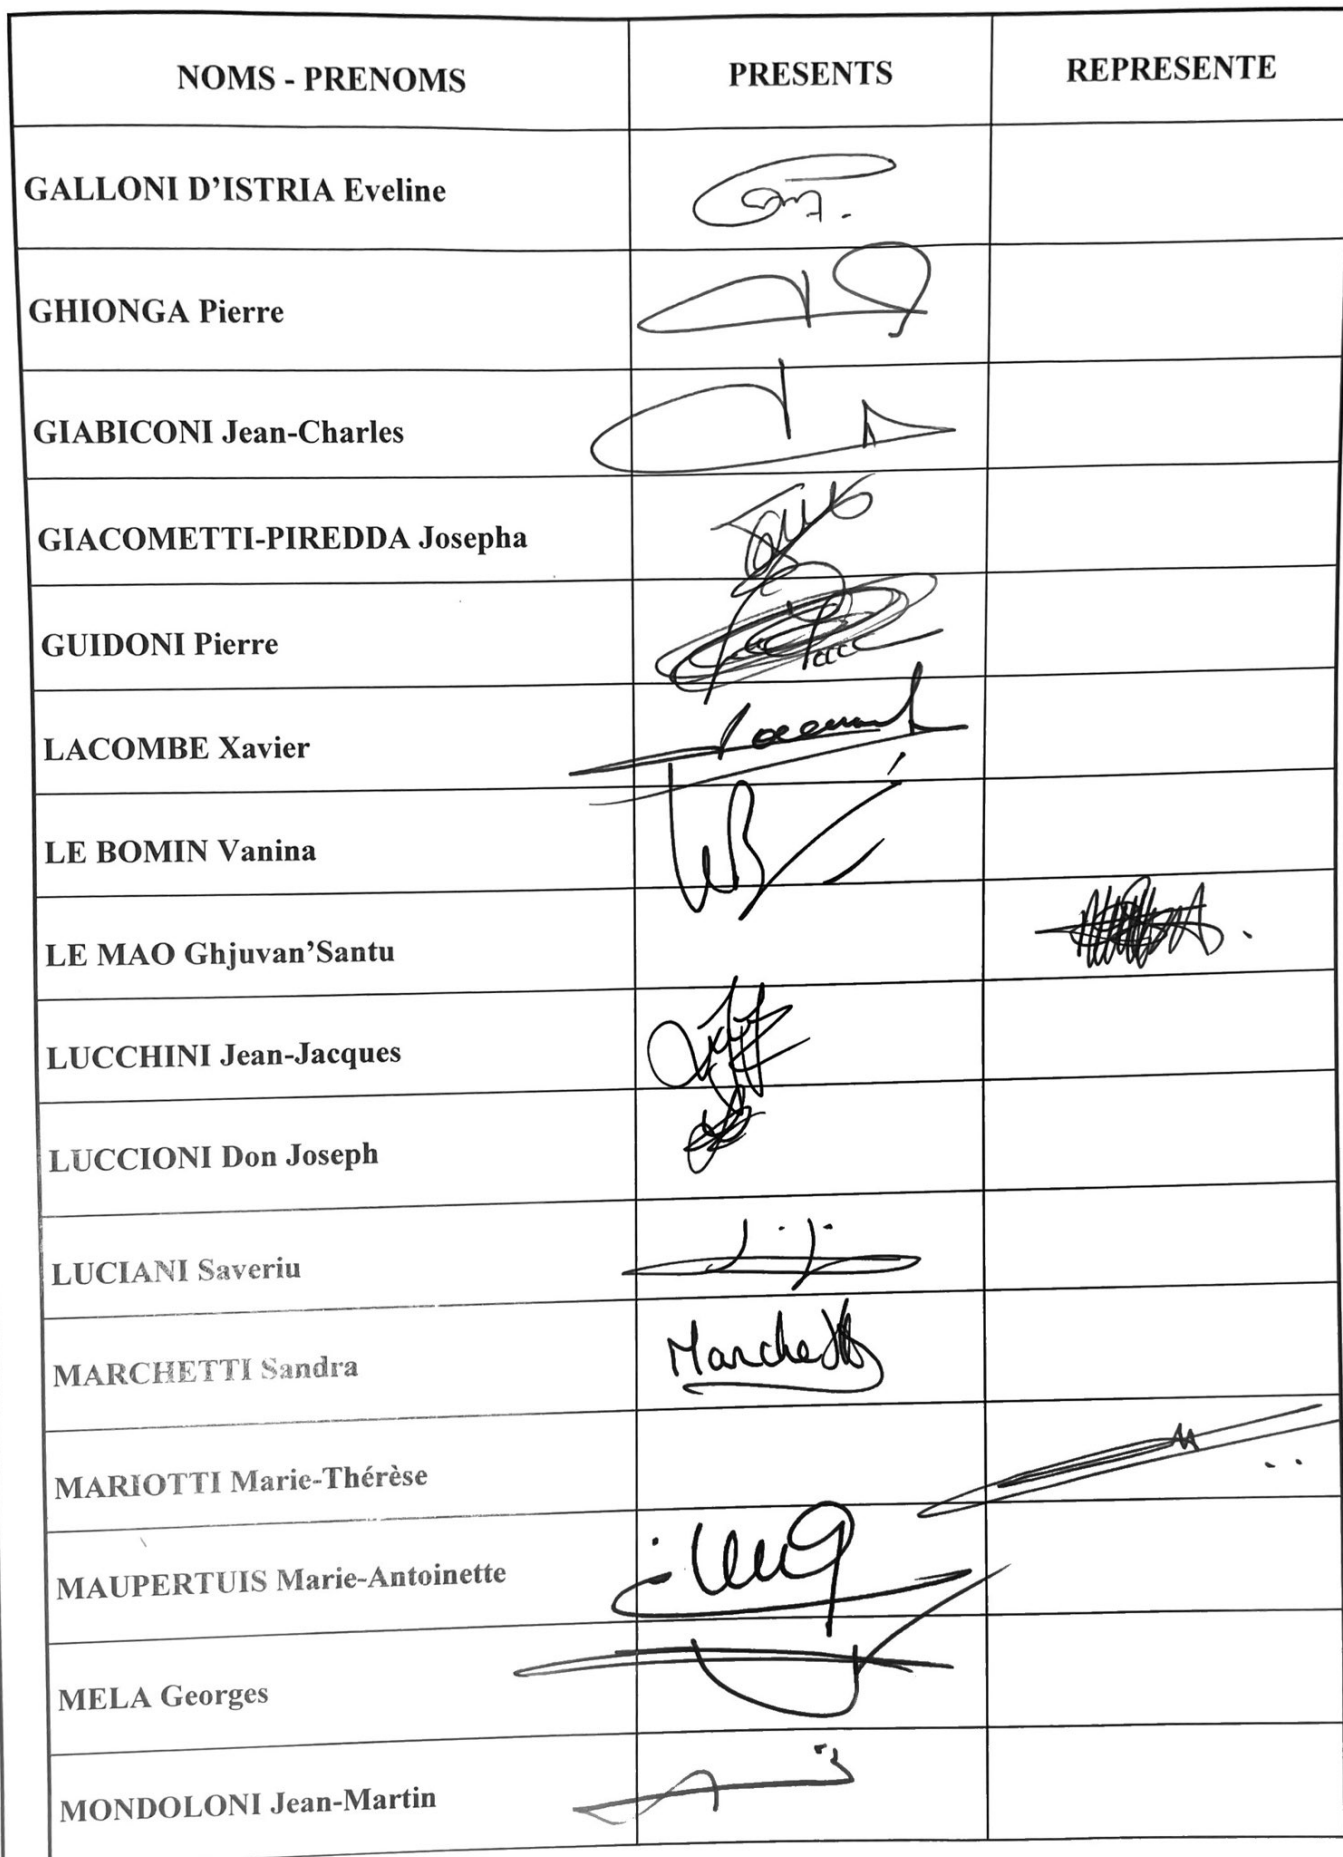 NOMS - PRENOMS PRESENTS REPRESENTE
GALLONI D'ISTRIA Eveline
GHIONGA Pierre
GIABICONI Jean-Charles
GIACOMETTI-PIREDDA Josepha
GUIDONI Pierre
LACOMBE Xavier
LE BOMIN Vanina
LE MAO Ghjuvan'Santu
LUCCHINI Jean-Jacques
LUCCIONI Don Joseph
LUCIANI Saveriu
MARCHETTI Sandra Marchetti
MARIOTTI Marie-Thérèse
MAUPERTUIS Marie-Antoinette
MELA Georges
MONDOLONI Jean-Martin